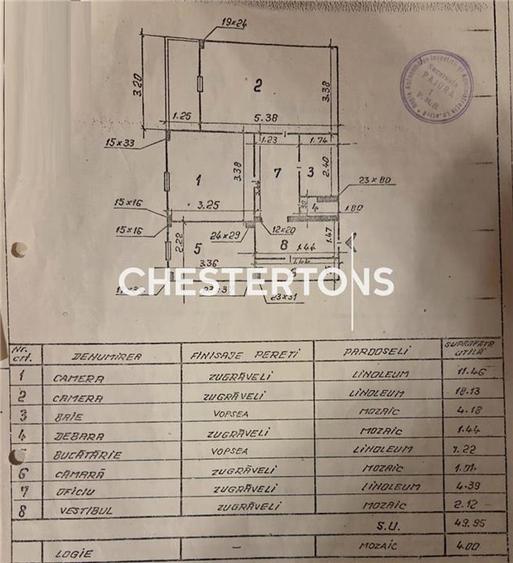 19×24
3.20
2
3.38
1.25
5.38
15×33
1.23
1.74
3.38
7
3
2.40
1
23×80
15×16
3.25
4
1.80
15×16
24×29
12×20
2.22
5
8
1.44
1.47
3.36
CHESTERTONS
1.44
6
23×31
PAJURA
Nr. crt. DENUMIREA FINISAJE PERETI PARDOSELI SUPRAFATA UTILĂ
1 CAMERA ZUGRĂVELI LINOLEUM 11.46
2 CAMERA ZUGRĂVELI LINOLEUM 18.13
3 BAIE VOPSEA MOZAIC 4.18
4 DEBARA ZUGRĂVELI MOZAIC 1.44
BUCĂTĂRIE VOPSEA LINOLEUM 7.22
6 CĂMARĂ ZUGRĂVELI MOZAIC 1.01
7 OFICIU ZUGRĂVELI LINOLEUM 4.39
8 VESTIBUL ZUGRĂVELI MOZAIC 2.12
S.U. 49.95
LOGIE – MOZAIC 4.00